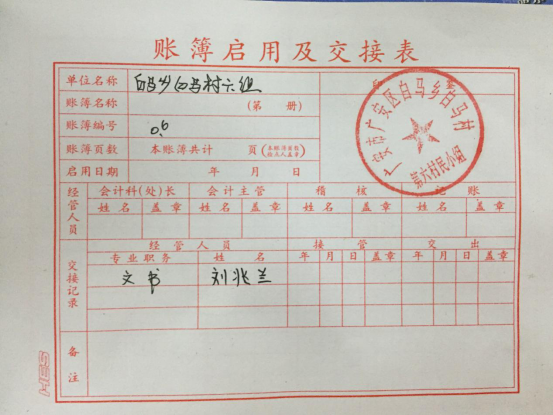 账簿启用及交接表
单位名称 白马乡白马村六组
账簿名称 (第 册)
账簿编号 06
账簿页数 本账簿共计 页(本账簿页数 检点人盖章)
启用日期 年 月 日
广安市广安区白马乡白马村
第六村民小组
经管人员 会计科(处)长 会计主管 稽核 记账
姓名 盖章 姓名 盖章 姓名 盖章 姓名 盖章
交接记录 经管人员 接管 交出
专业职务 姓名 年 月 日 盖章 年 月 日 盖章
文书 刘兆兰
备注